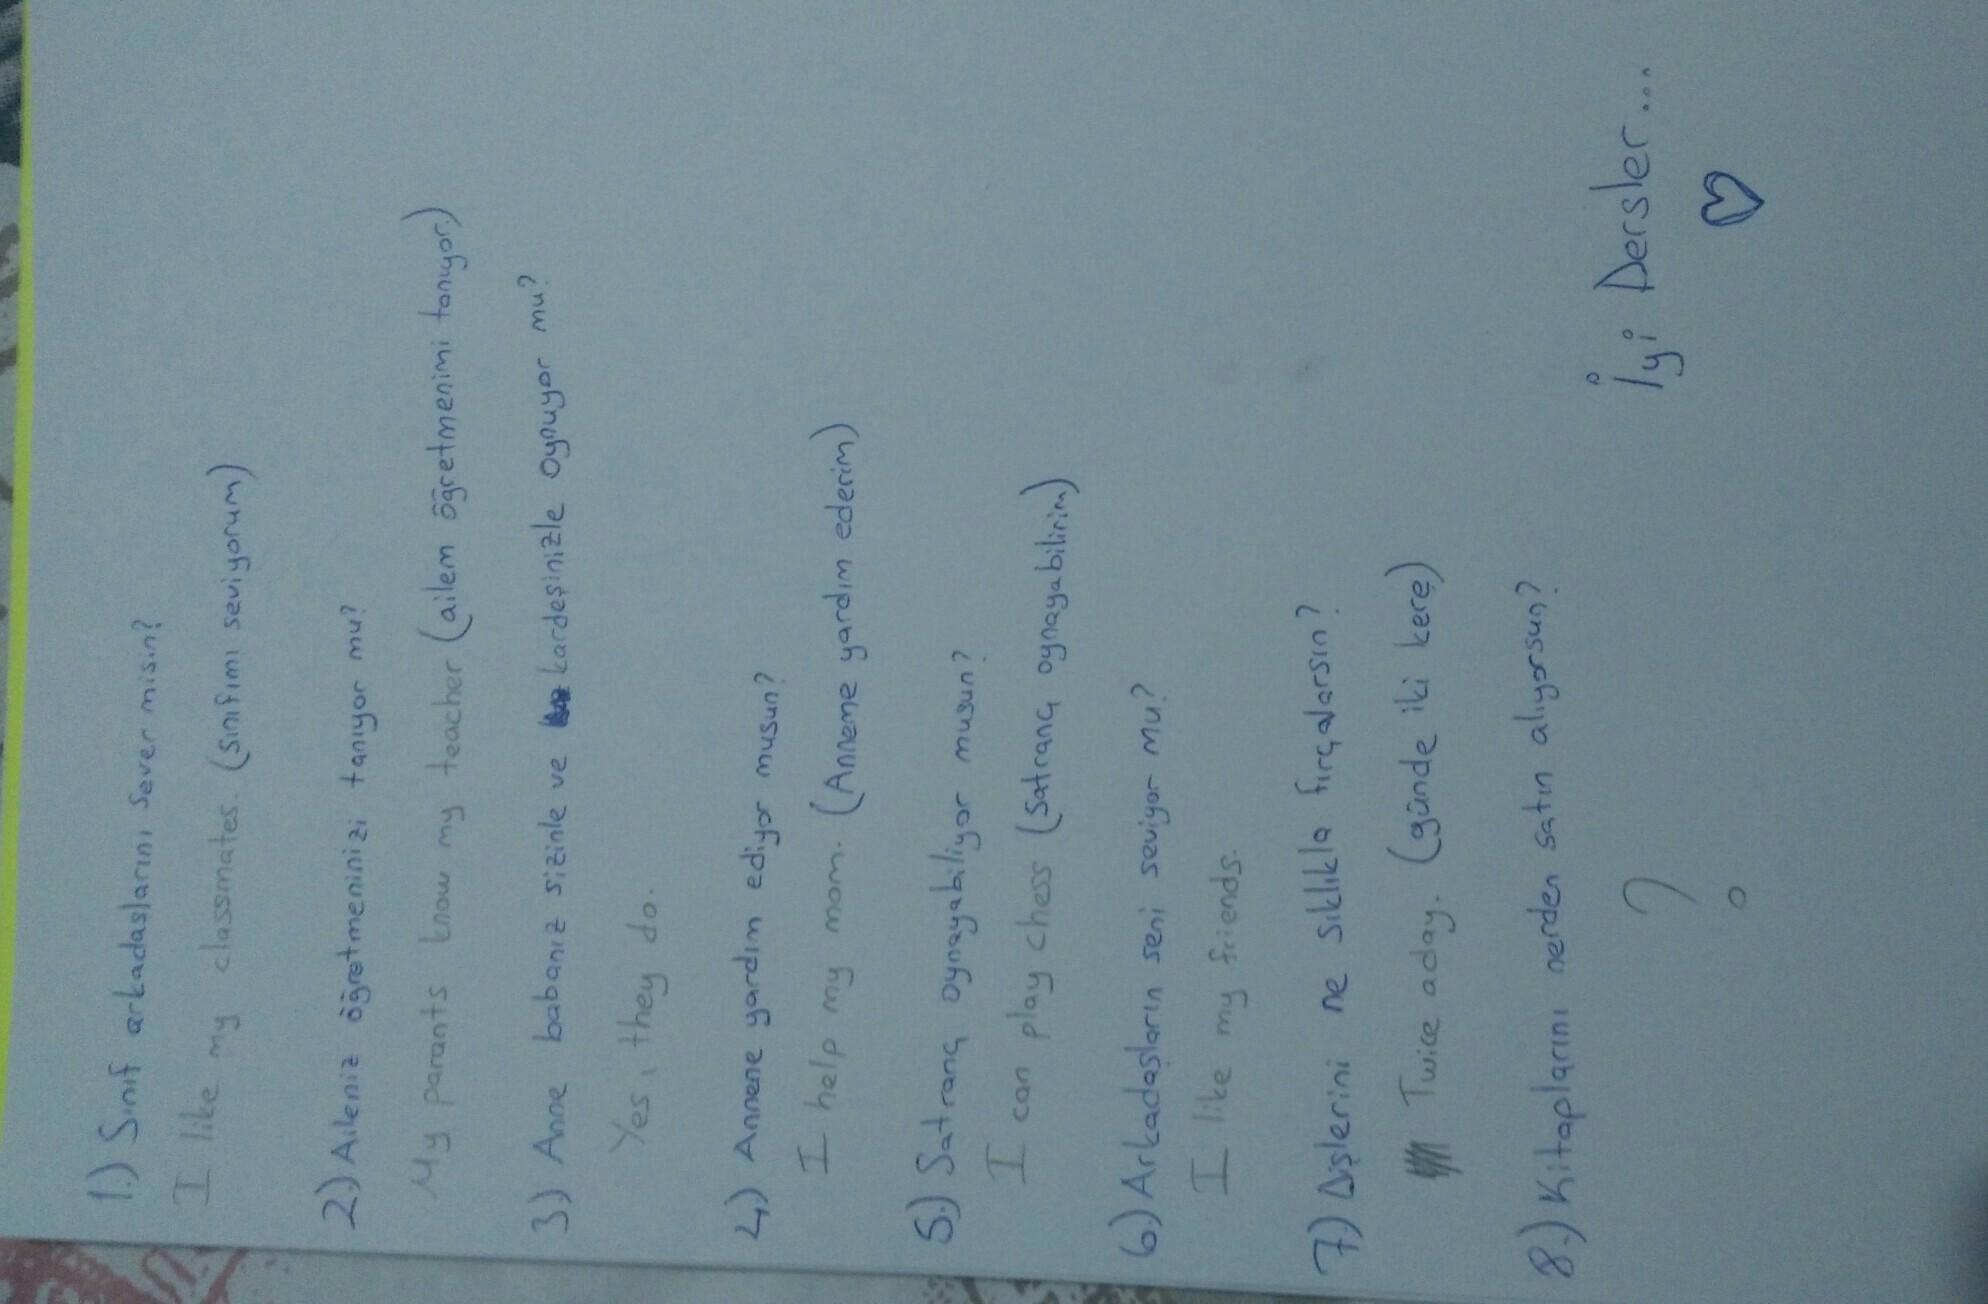 1.) Sınıf arkadaslarını sever misin?
I like my classmates. (sınıfımı seviyorum)
2.) Aileniz öğretmeninizi tanıyor mu?
My parants know my teacher (ailem öğretmenimi tanıyor)
3.) Anne babanız sizinle ve kardeşinizle oynuyor mu?
Yes, they do.
4.) Annene yardım ediyor musun?
I help my mom. (Anneme yardım ederim)
5.) Satranç oynayabiliyor musun?
I can play chess (Satranç oynayabilirim)
6.) Arkadaşların seni seviyor mu?
I like my friends.
7.) Dişlerini ne sıklıkla fırçalarsın?
Twice a day. (günde iki kere)
8.) Kitaplarını nerden satın alıyorsun?
?
İyi Dersler...